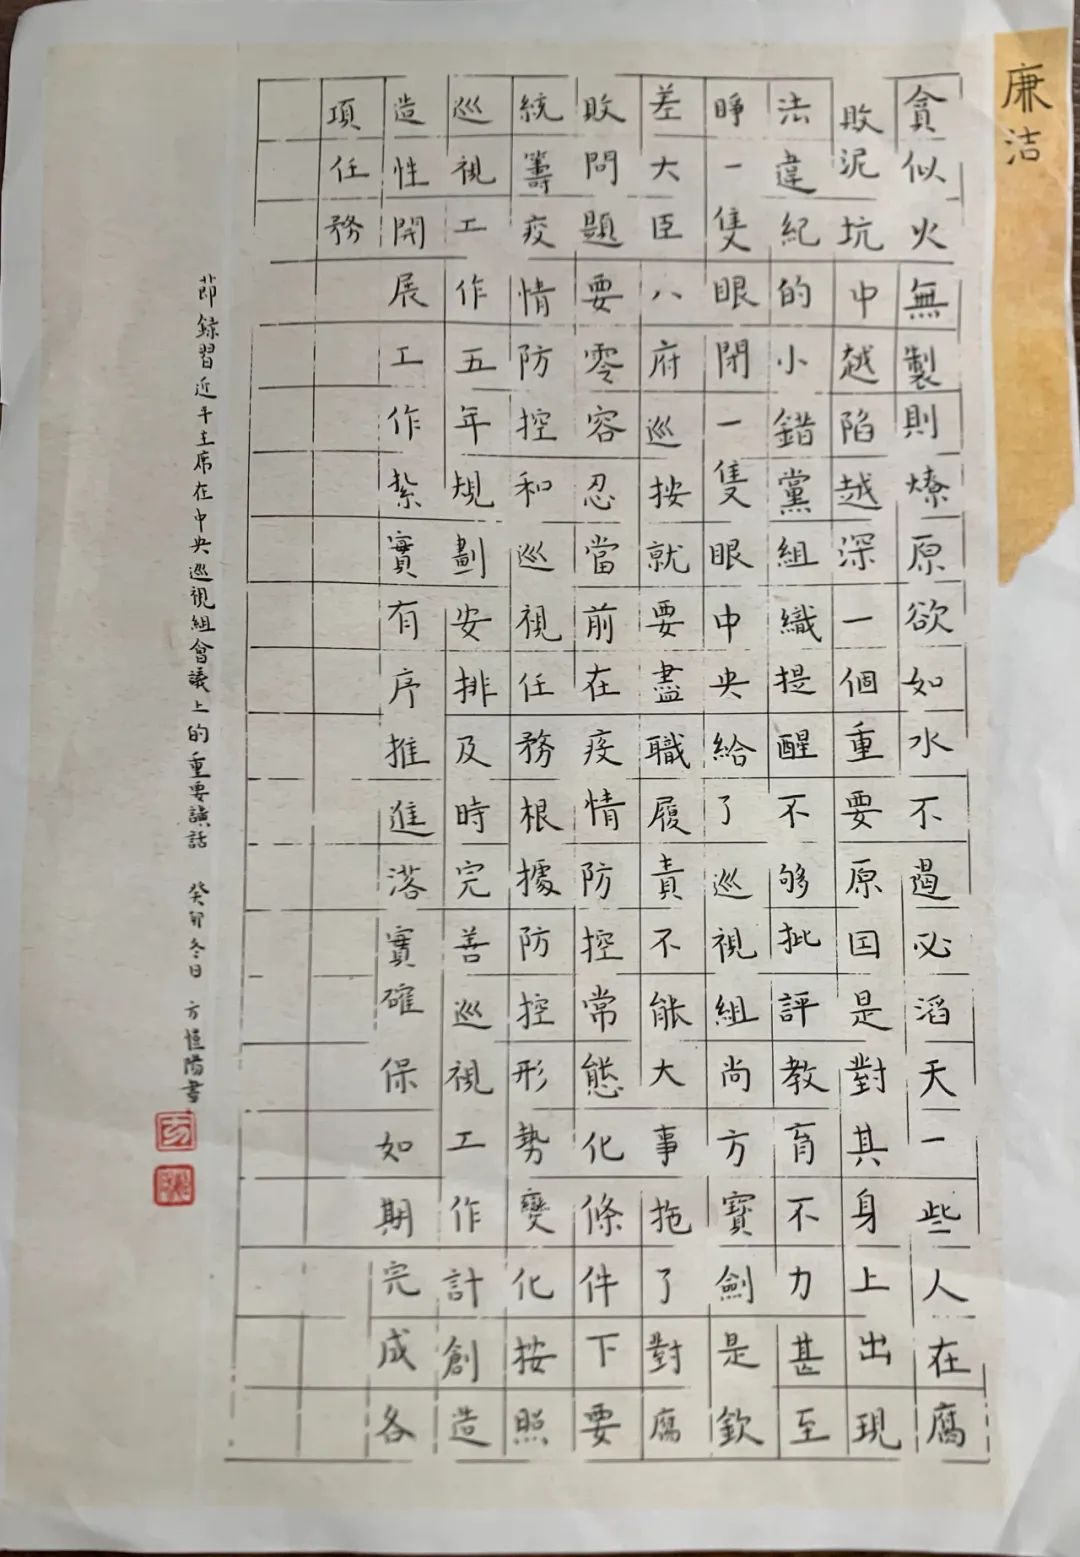 廉洁
貪似火無製則燎原欲如水不遏必滔天一些人在腐
敗泥坑中越陷越深一個重要原因是對其身上出現
法違紀的小錯黨組織提醒不够批評教育不力甚至
睜一隻眼閉一隻眼中央給了巡視組尚方寶劍是欽
差大臣八府巡按就要盡職履責不能大事拖了對腐
敗問題要零容忍當前在疫情防控常態化條件下要
統籌疫情防控和巡視任務根據防控形勢變化按照
巡視工作五年規劃安排及時完善巡視工作計創造
造性開展工作紮實有序推進落實確保如期完成各
項任務
節錄習近平主席在中央巡視組會議上的重要講話 癸卯冬日 方恒陽書